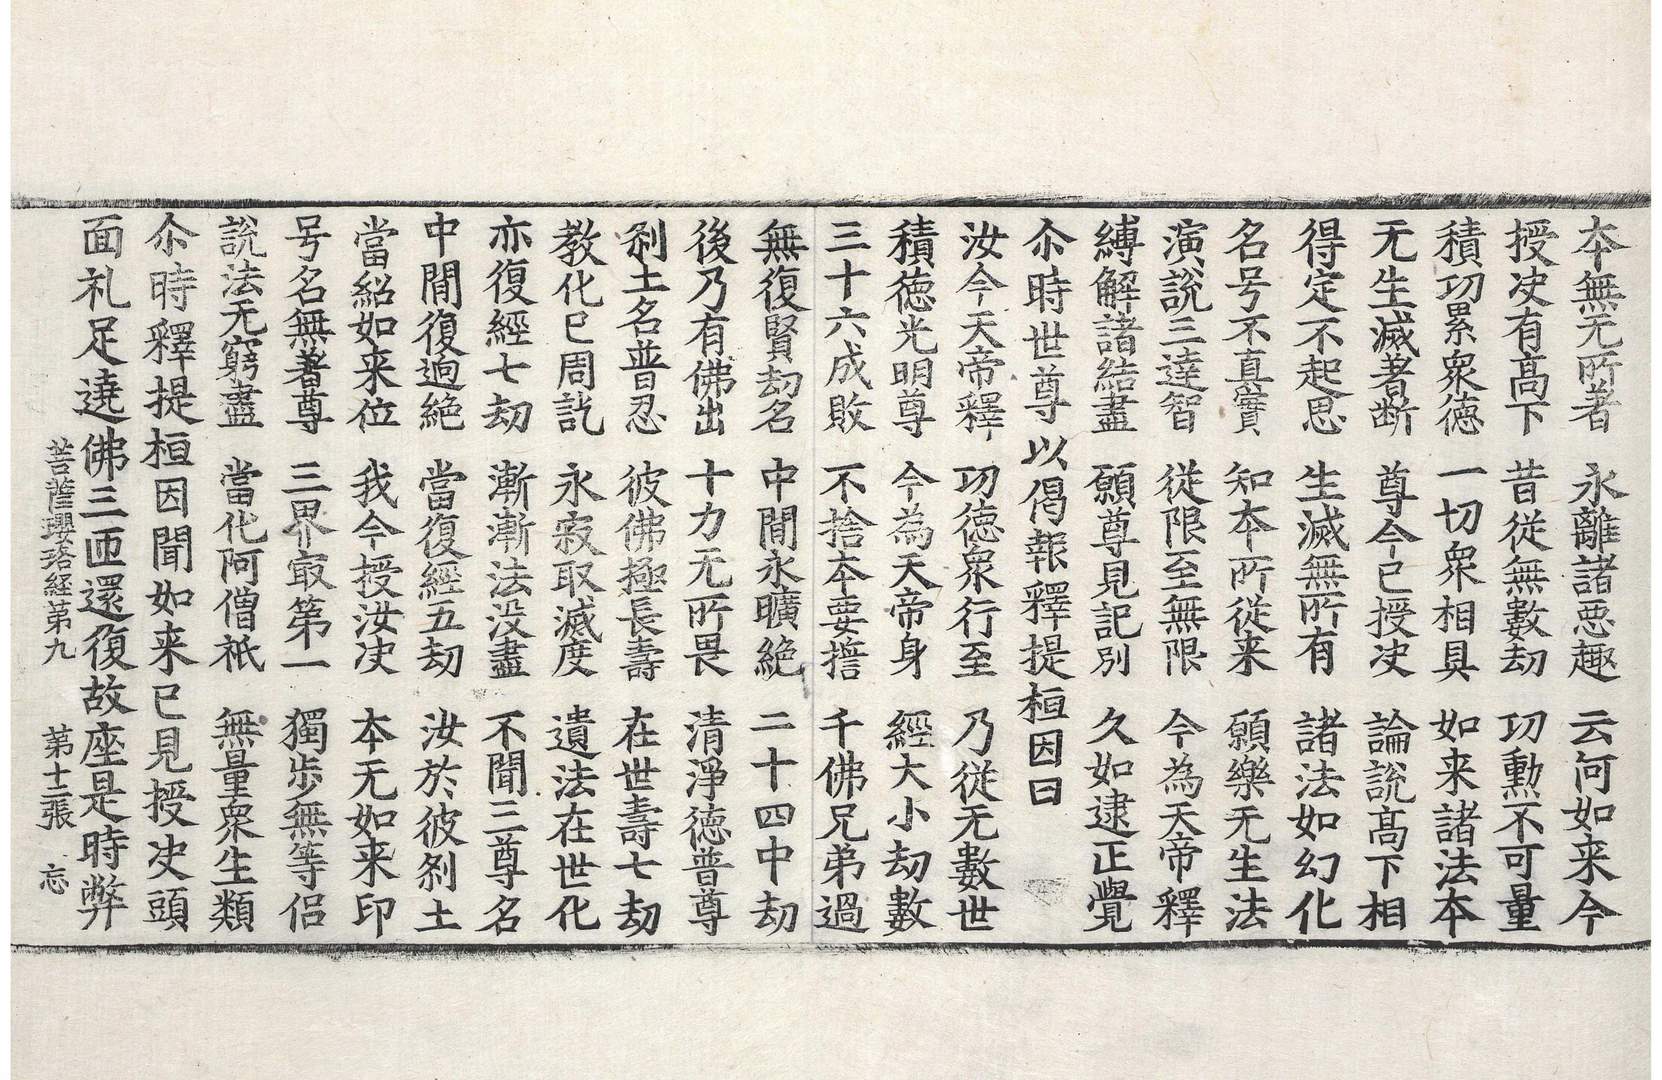 本無无所著　永離諸惡趣　云何如来今
授决有髙下　昔從無數劫　功勳不可量
積功累衆徳　一切衆相具　如来諸法本
无生滅著断　尊今已授决　論說髙下相
得定不起思　生滅無所有　諸法如幻化
名号不真實　知本所從来　願樂无生法
演說三達智　從限至無限　今為天帝釋
縛解諸結盡　願尊見記別　久如逮正覺
尒時世尊以偈報釋提桓因曰
汝今天帝釋　功徳衆行至　乃從无數世
積徳光明尊　今為天帝身　經大小劫數
三十六成敗　不捨本要擔　千佛兄弟過
無復賢劫名　中間永曠絶　二十四中劫
後乃有佛出　十力无所畏　清淨徳普尊
刹土名普忍　彼佛極長壽　在世壽七劫
教化已周訖　永寂取滅度　遺法在世化
亦復經七劫　漸漸法没盡　不聞三尊名
中間復逈絶　當復經五劫　汝於彼刹土
當紹如来位　我今授汝决　本无如来印
号名無著尊　三界㝡第一　獨步無等侶
說法无窮盡　當化阿僧祇　無量衆生類
尒時釋提桓因聞如来已見授决頭
面礼足遶佛三匝還復故座是時弊
菩薩瓔珞經第九　第十二張　忘